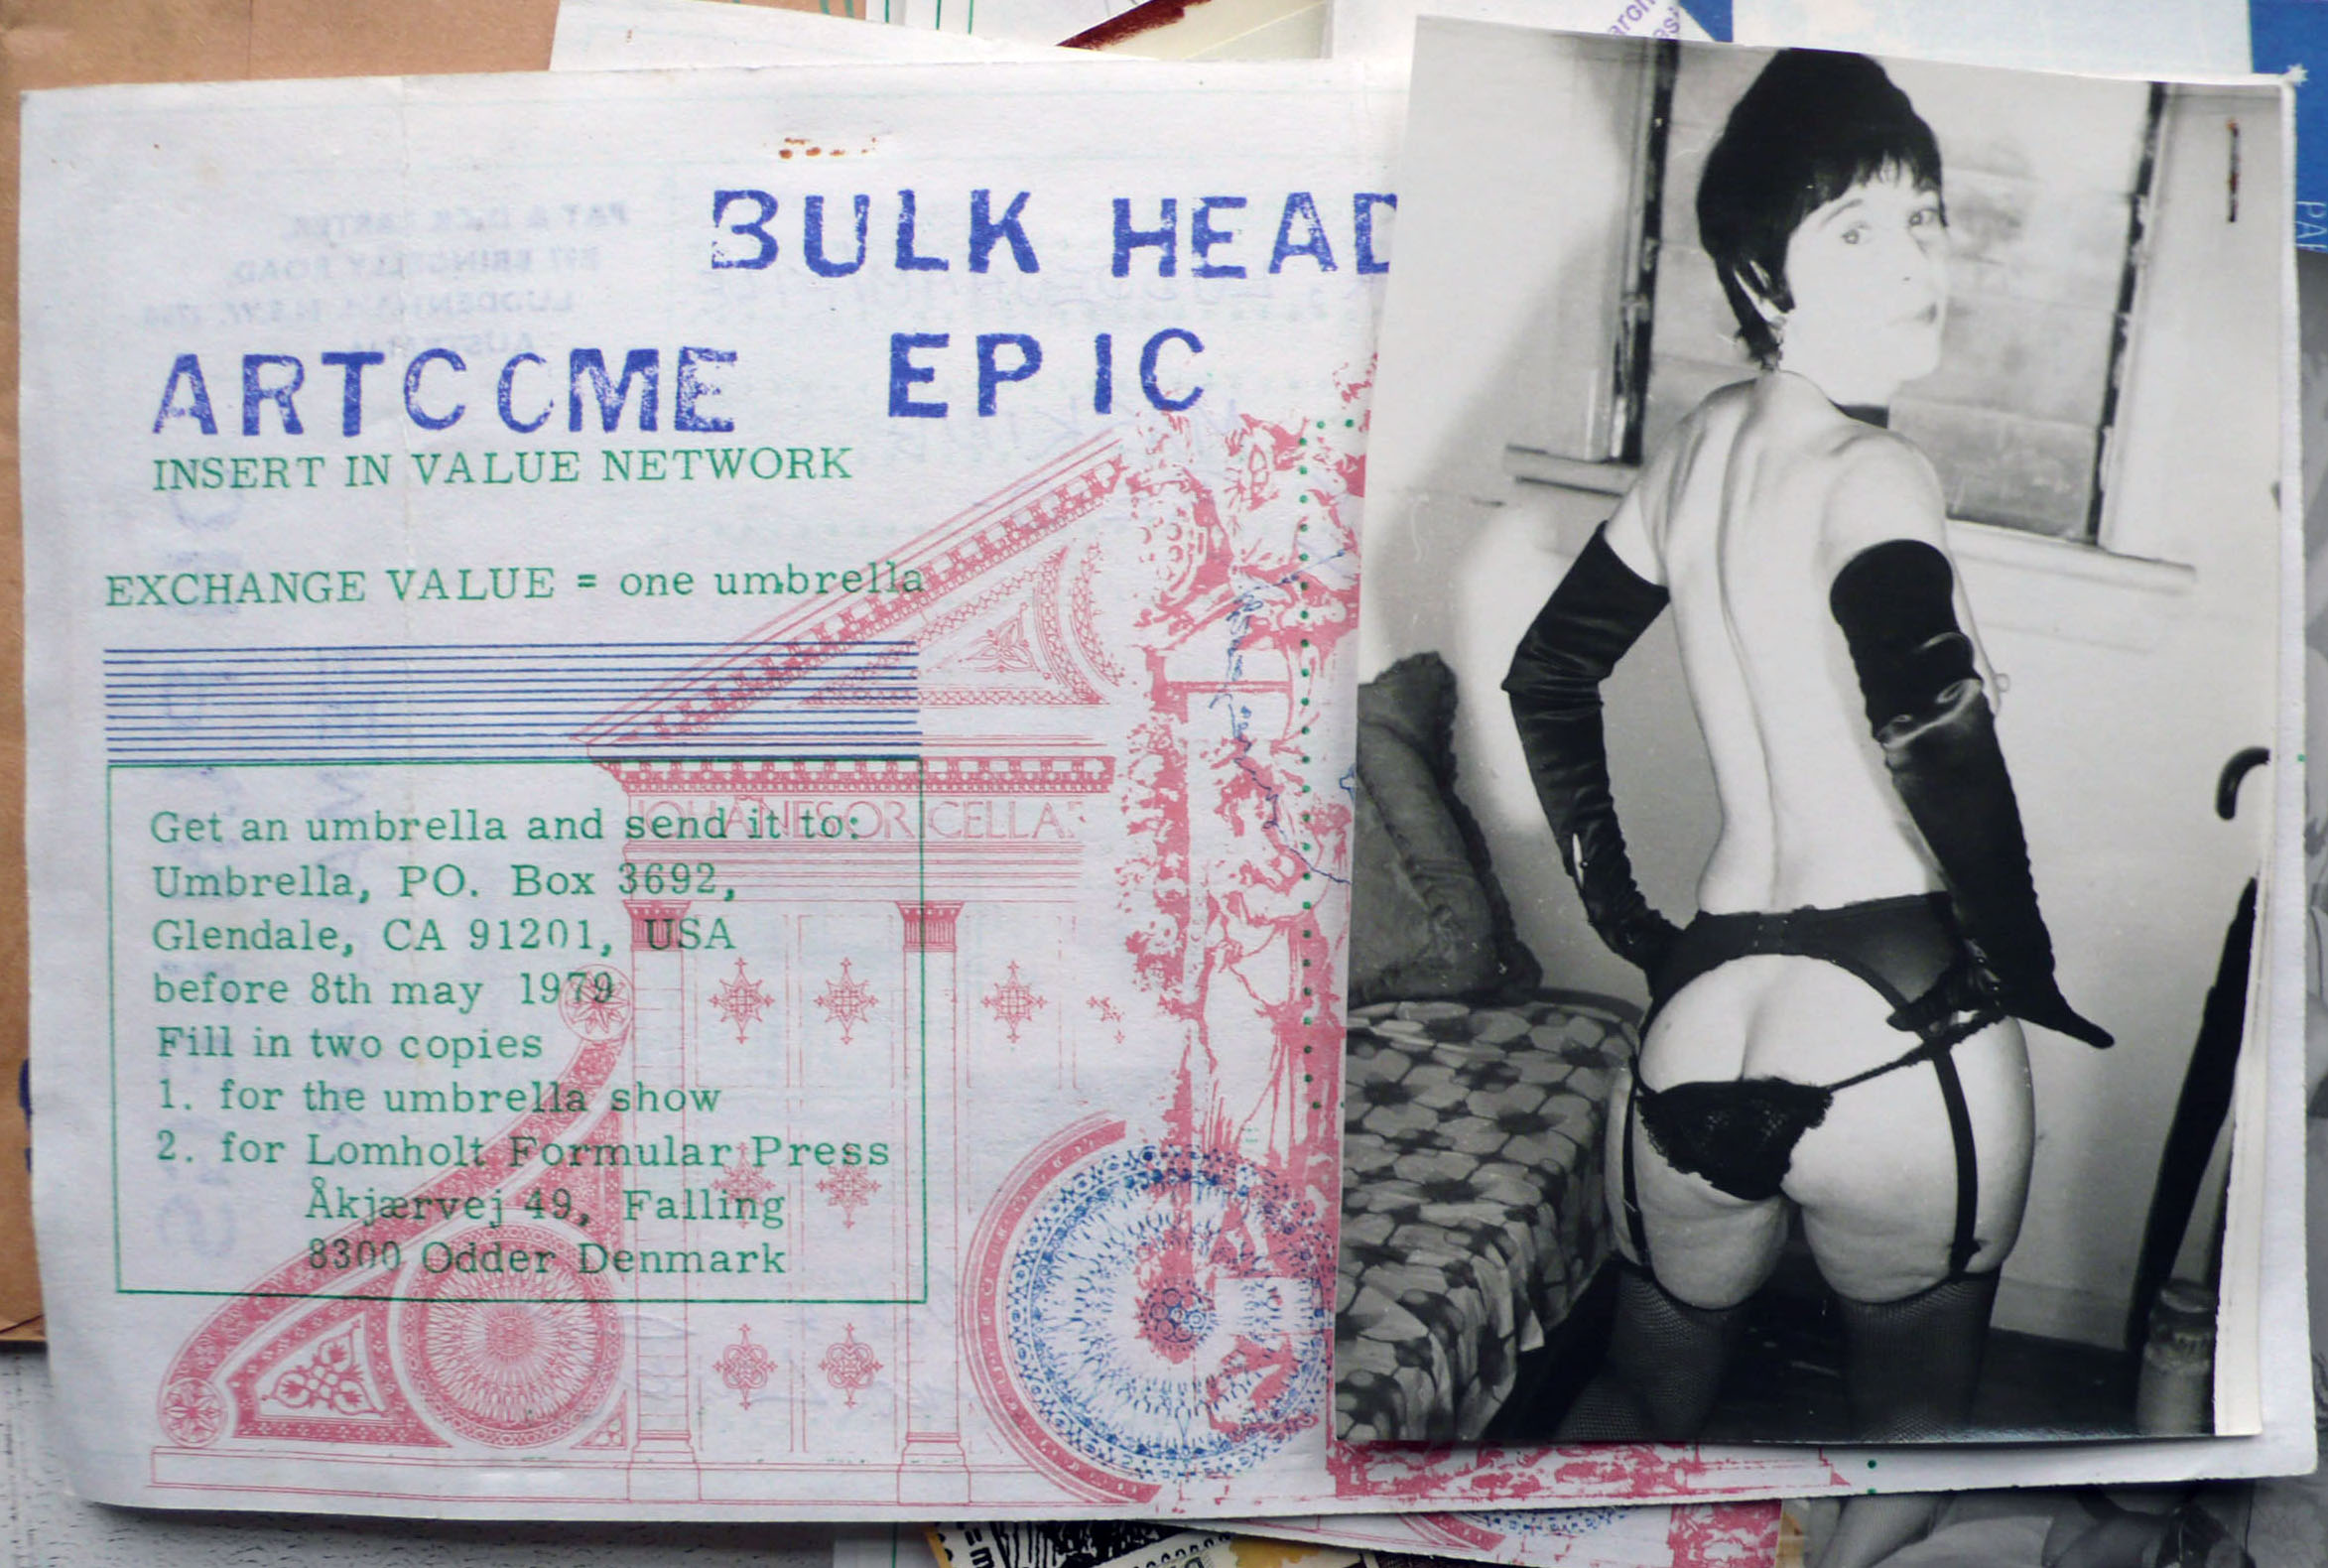 BULK HEAD
ARTCOME EPIC
INSERT IN VALUE NETWORK
EXCHANGE VALUE = one umbrella
Get an umbrella and send it to:
Umbrella, PO. Box 3692,
Glendale, CA 91201, USA
before 8th may 1979
Fill in two copies
1. for the umbrella show
2. for Lomholt Formular Press
Åkjærvej 49, Falling
8300 Odder Denmark